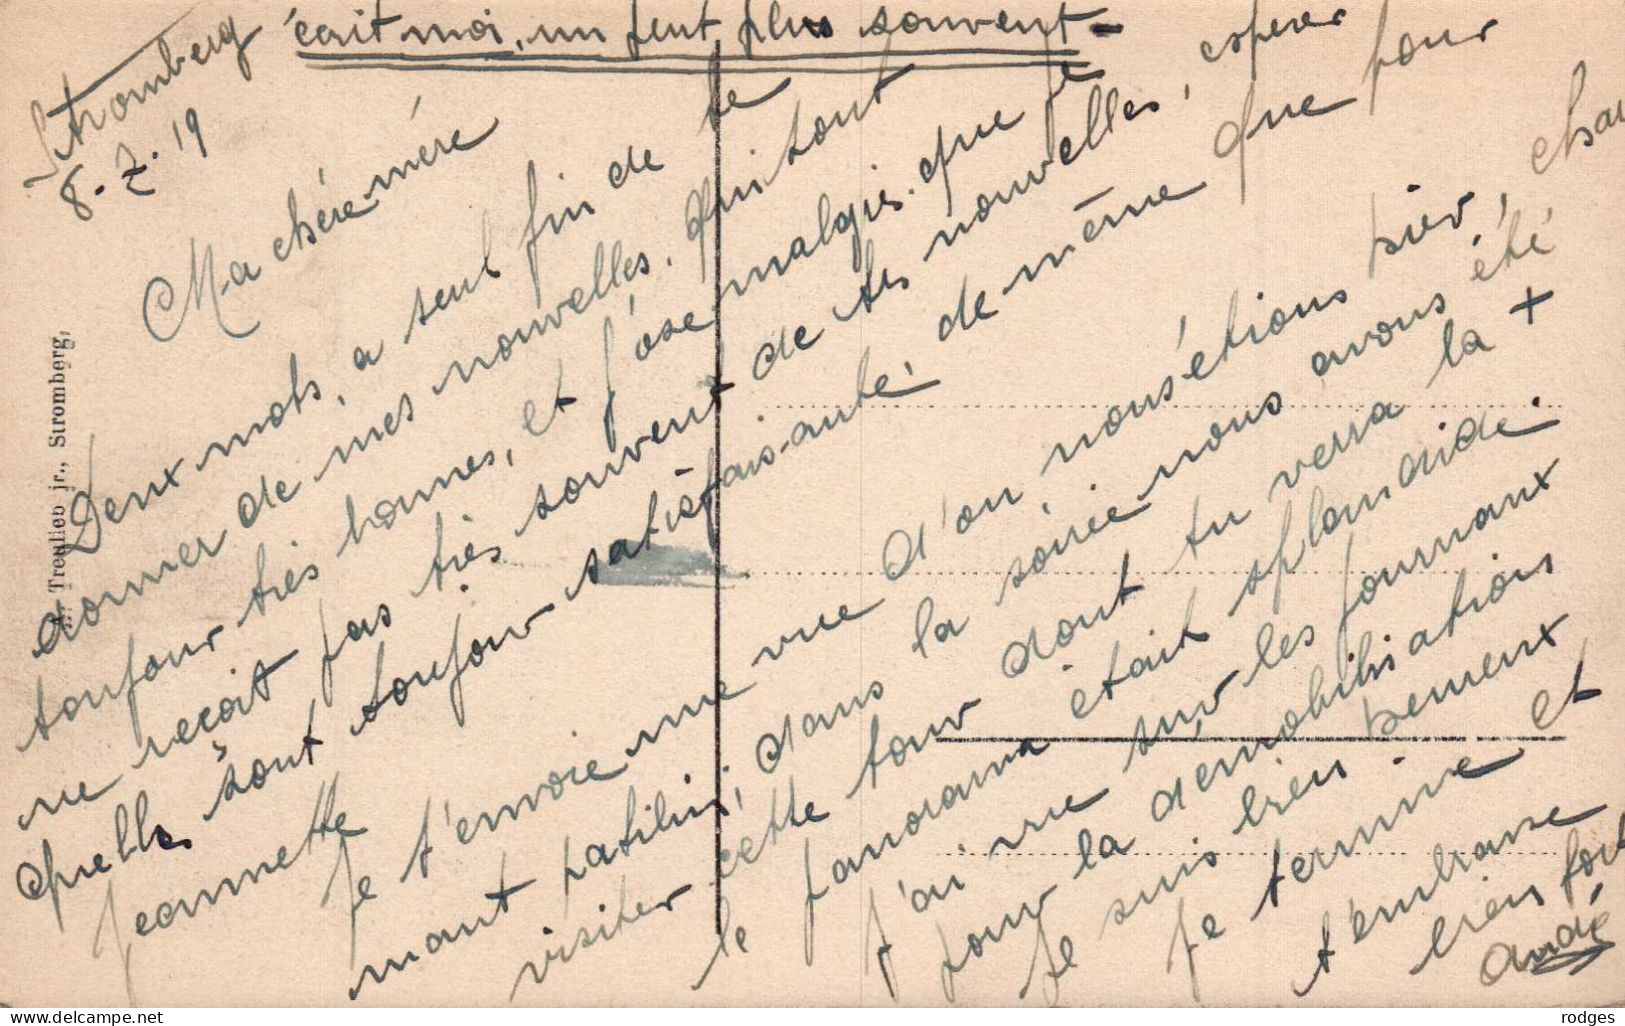 écrit moi, un peut plus souvent -
Stromberg
8. 2. 19
Ma chére mére
Deux mots, a seul fin de te
donner de mes nouvelles. Qui sont
toujour très bonnes, et j'ose malgis que je
ne reçoit pas très souvent de tes nouvelles, esperer
Quelles sont toujour satisfais-ante, de même que pour
jeannette
Je t'envoie une vue d'ou nousétions hier, chau
mant patilin, dans la soirée nous avons été
visiter cette tour dont tu verra la +
le panorama était splandide.
J'ai vue sur les journaux
pour la démobilisations
Je suis bien
Je termine et
t'embrasse
bien fort
André
Treulieb jr., Stromberg,
rodges
www.delcampe.net